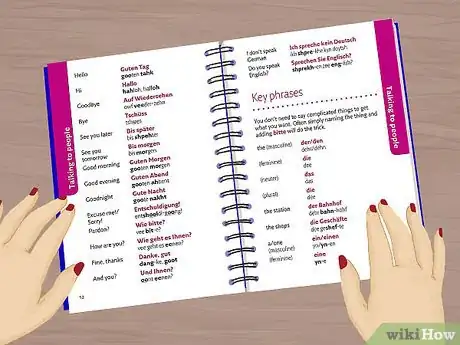 Talking to people
Hello
Guten Tag
gooten tahk
Hi
Hallo
hahloh, halloh
Goodbye
Auf Wiedersehen
owf veederzehn
Bye
Tschüss
tshues
See you later
Bis später
bis shpehter
See you
tomorrow
Bis morgen
bis morgen
Good morning
Guten Morgen
gooten morgen
Good evening
Guten Abend
gooten ahbent
Goodnight
Gute Nacht
goote nakht
Excuse me!/
Pardon?
Entschuldigung!
entshooldigoong!
Wie bitte?
vee bit-e?
How are you?
Wie geht es Ihnen?
vee geht es eenen?
Fine, thanks
Danke, gut
dang-ke, goot
And you?
Und Ihnen?
oont eenen?
10
I don't speak
German
Ich spreche kein Deutsch
Do you speak
English?
Sprechen Sie Englisch?
shprekh-en zee eng-lish?
Key phrases
You don't need to say complicated things to get
what you want. Often simply naming the thing and
adding bitte will do the trick.
the (masculine)
der/den
dehr/dehn
(feminine)
die
dee
(neuter)
das
das
(plural)
die
dee
the station
der Bahnhof
dehr bahn-hohf
the shops
die Geschäfte
dee geshef-te
a/one
(masculine)
ein/einen
yn/yn-en
(feminine)
eine
yn-e
Talking to people
wikiHow